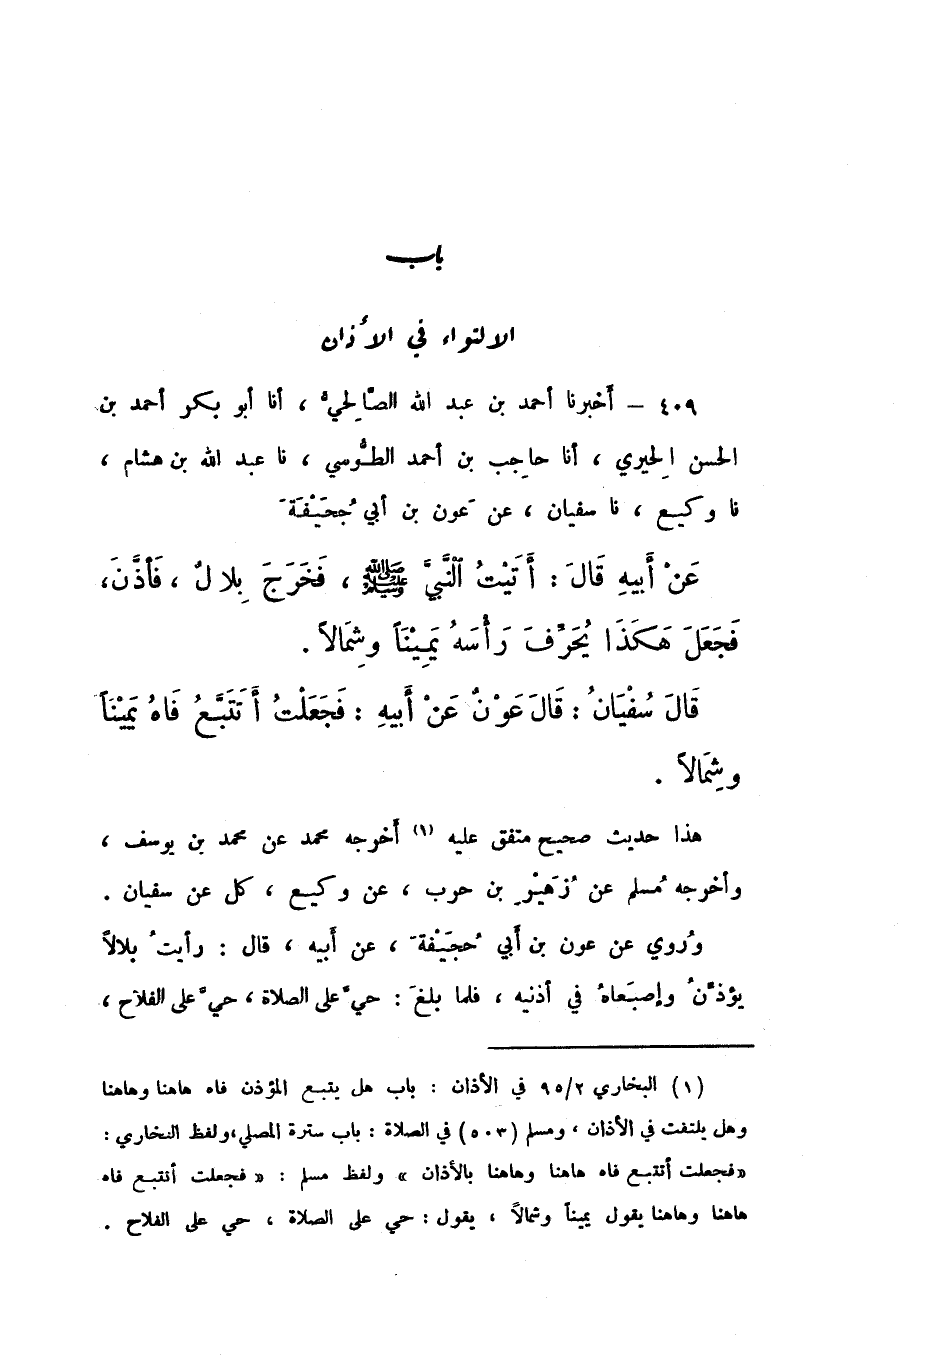 باب
الالتواء في الأذان
٤٠٩ – أخبرنا أحمد بن عبد الله الصَّالِحيُّ ، أنا أبو بكر أحمد بن
الحسن الحِيري ، أنا حاجِب بن أحمد الطُّوسي ، نا عبد الله بن هشام ،
نا وكيع ، نا سفيان ، عن عَون بن أبي جُحَيْفَةَ
عَنْ أَبِيهِ قَالَ : أَتَيْتُ النَّبِيَّ ﷺ ، فَخَرَجَ بِلالٌ ، فَأَذَّنَ،
فَجَعَلَ هَكَذَا يُحَرِّفُ رَأْسَهُ يَمِيْنَاً وشِمَالاً .
قَالَ سُفْيَانُ : قَالَ عَوْنٌ عَنْ أَبِيهِ : فَجَعَلْتُ أَتَتَبَّعُ فَاهُ يَمِيْنَاً
وشِمَالاً .
هذا حديث صحيح متفق عليه (١) أخرجه محمد عن محمد بن يوسف ،
وأخرجه مُسلم عن زُهَيْرِ بن حرب ، عن وكيع ، كل عن سفيان .
ورُوي عن عون بن أبي جُحَيْفَةَ ، عن أبيه ، قال : رأيتُ بلالاً
يؤذِّنُ وإصبَعاهُ في أذنيه ، فلما بلغَ : حيَّ على الصلاة ، حيَّ على الفلاح ،
(١) البخاري ٩٥/٢ في الأذان : باب هل يتبع المؤذن فاه هاهنا وهاهنا
وهل يلتفت في الأذان ، ومسلم (٥٠٣) في الصلاة : باب سترة المصلي، ولفظ البخاري :
« فجعلت أتتبع فاه هاهنا وهاهنا بالأذان » ولفظ مسلم : « فجعلت أتتبع فاه
هاهنا وهاهنا يقول يميناً وشمالاً ، يقول : حي على الصلاة ، حي على الفلاح .